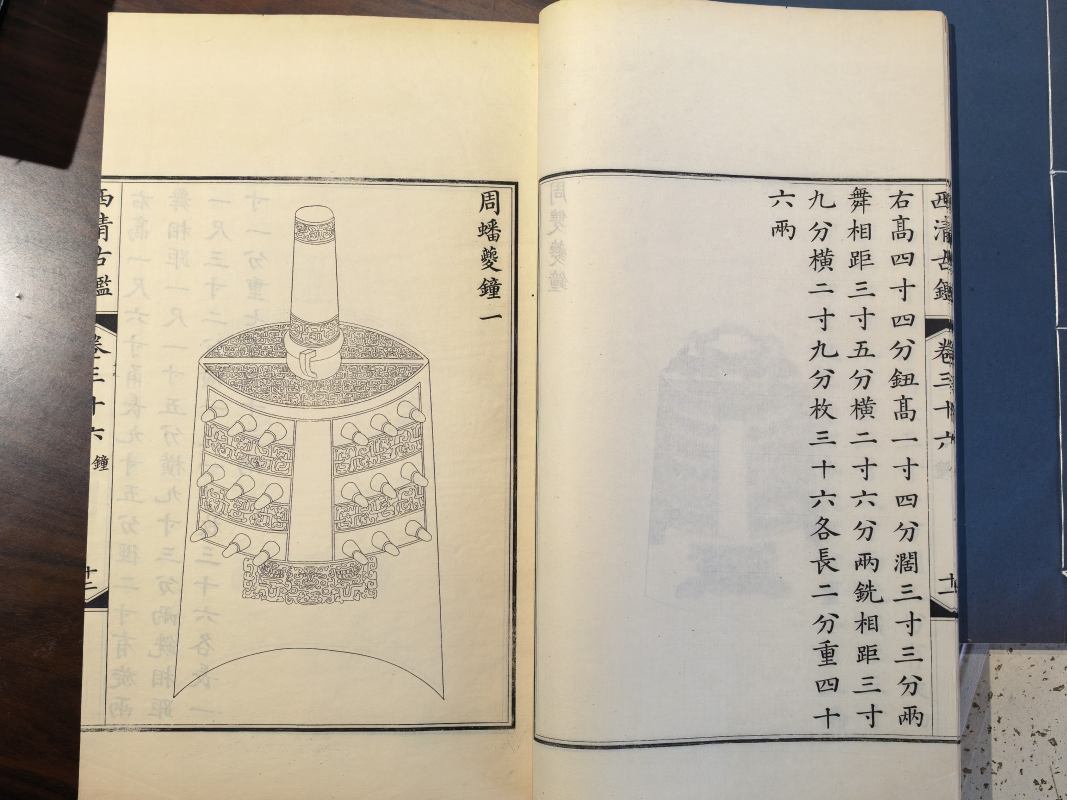 西清古鑑
卷三十六
十一
右髙四寸四分鈕髙一寸四分濶三寸三分兩
舞相距三寸五分橫二寸六分兩銑相距三寸
九分橫二寸九分枚三十六各長二分重四十
六兩
周蟠夔鐘一
西清古鑑
卷三十六
鐘
十二